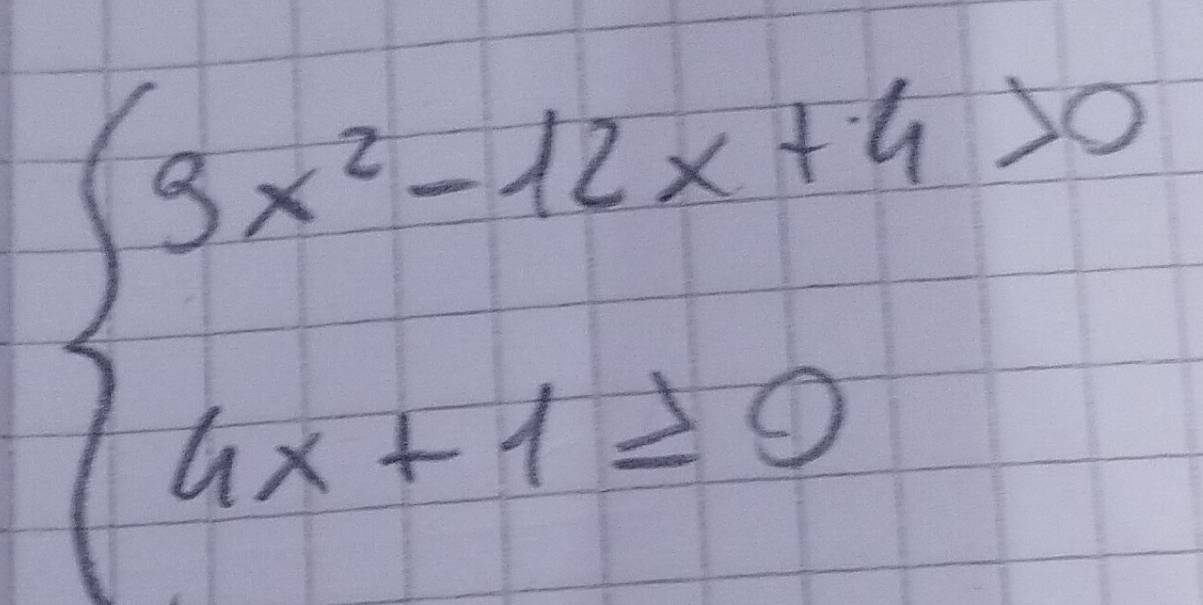 9x² - 12x + 4 > 0
4x + 1 ≥ 0